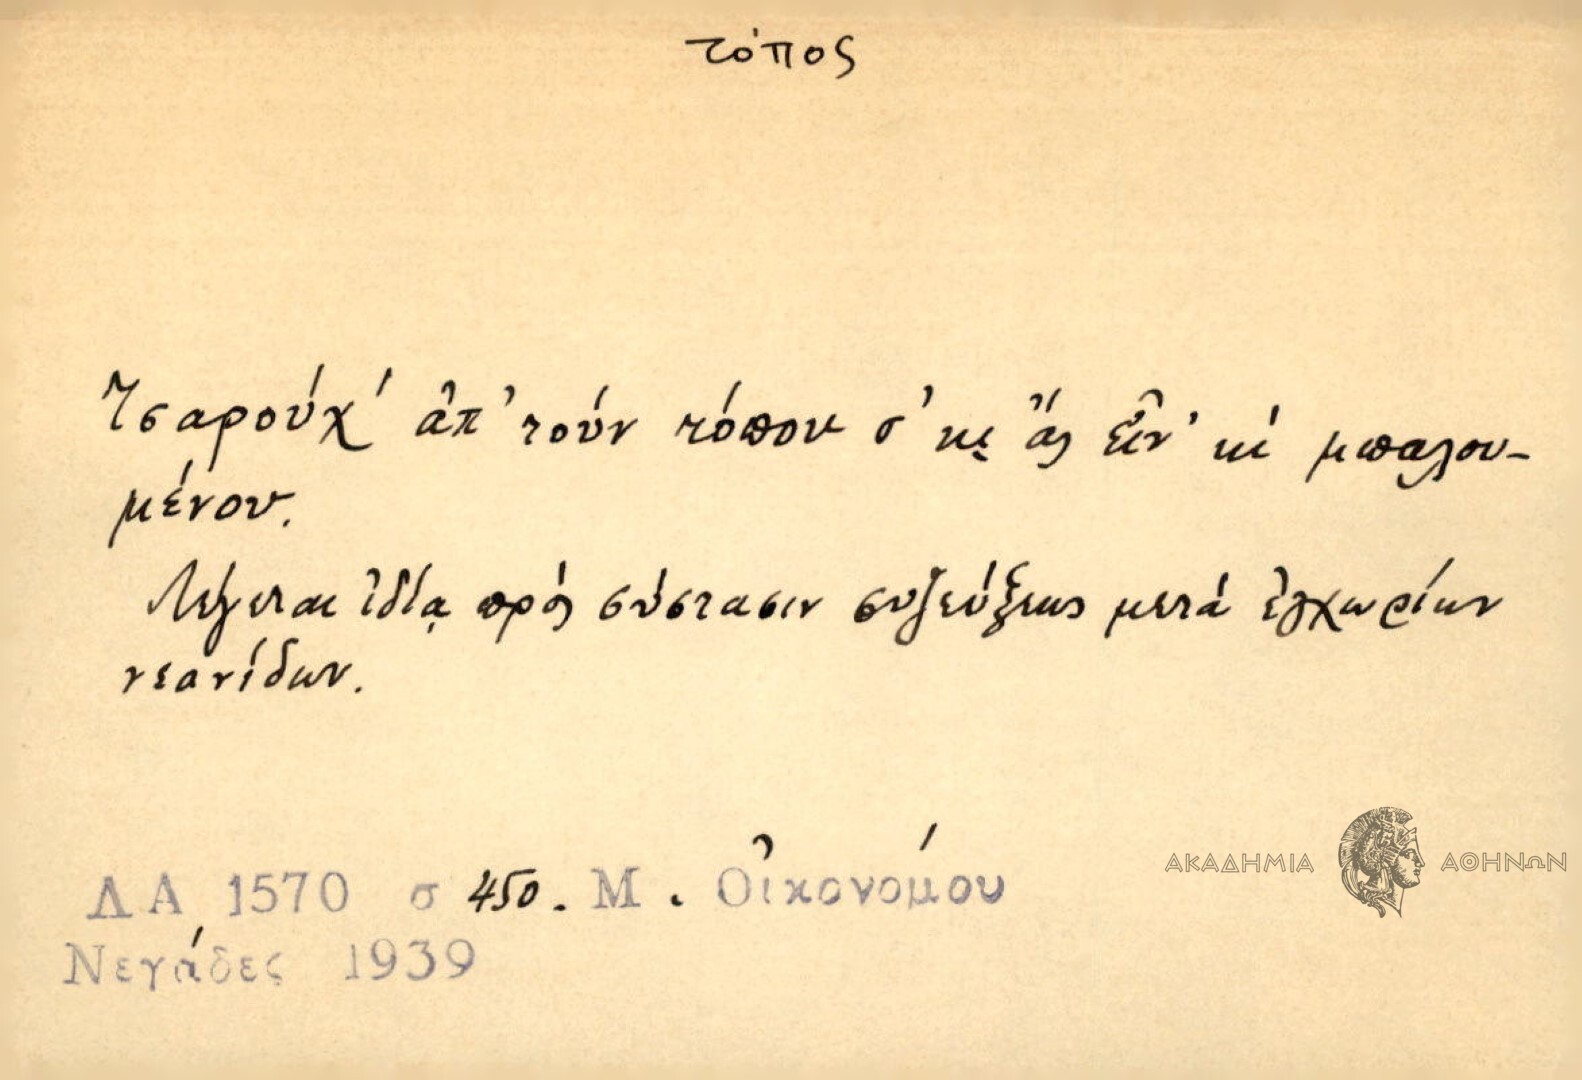 τόπος
Τσαρούχ' ἀπ' τούν τόπου σ' κι ἄς εἶν' κί μπαλου-
μένου.
Λέγεται ἰδίᾳ πρός σύστασιν συζεύξεως μετά ἐγχωρίων
νεανίδων.
ΛΑ 1570 σ 450. Μ. Οἰκονόμου
Νεγάδες 1939
ΑΚΑΔΗΜΙΑ ΑΘΗΝΩΝ